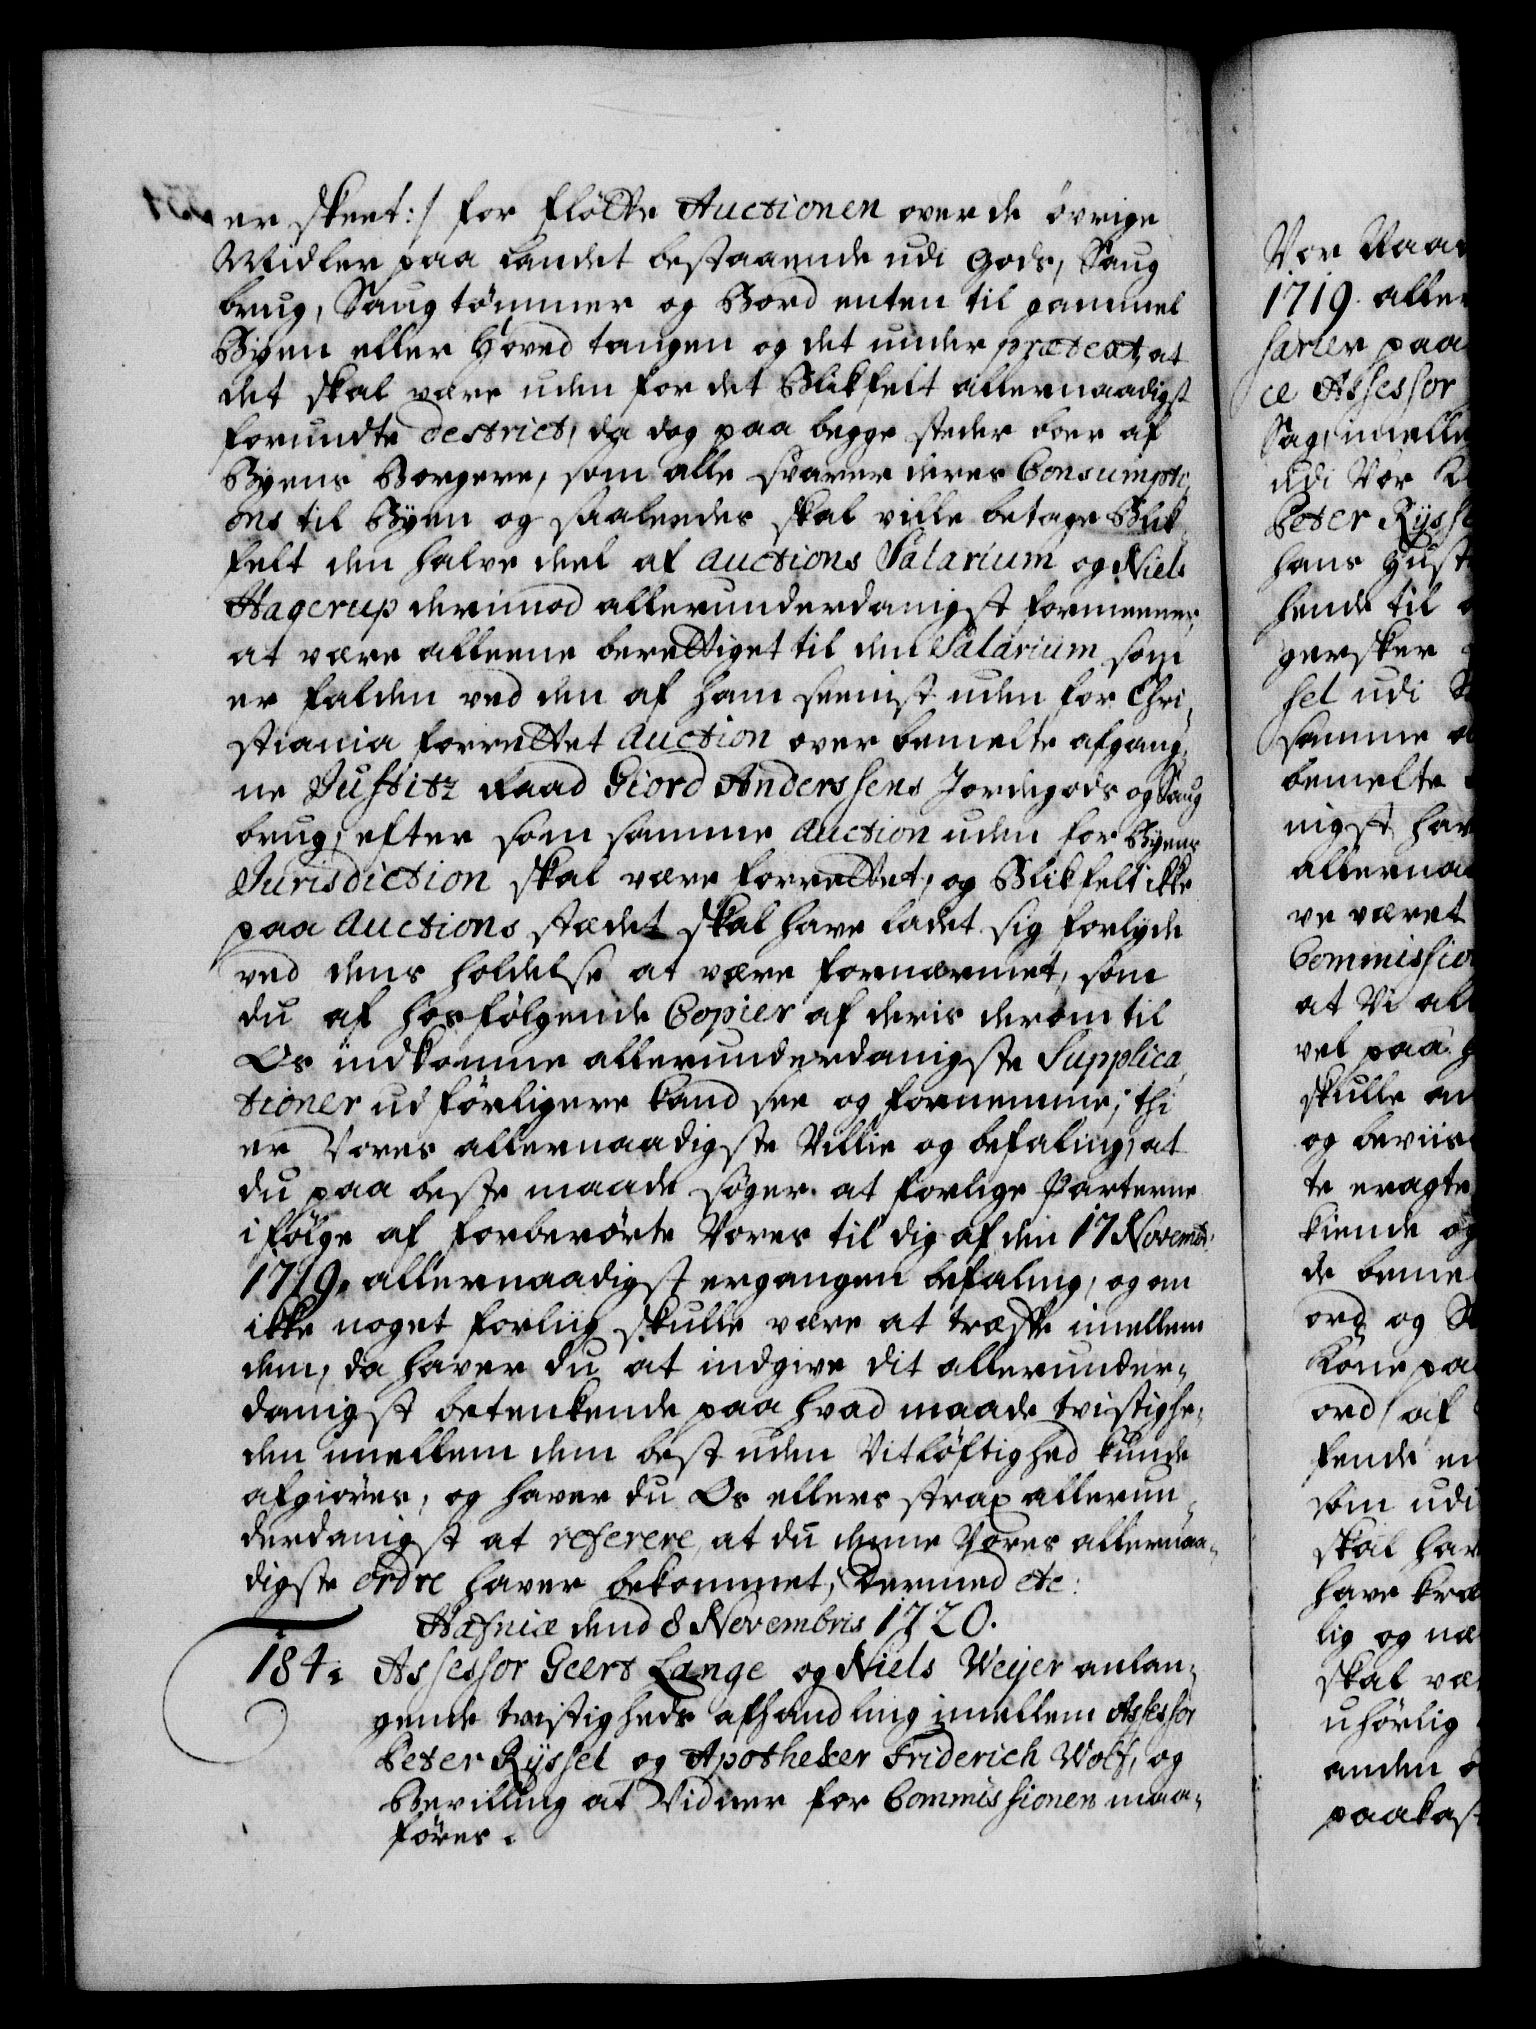 er skeet:/ for flötte Auctionen over de övrige
Midler paa Landet bestaaende udi Gods, Saug
brug, Saugtömmer og Bord enten til gammel
Byen eller Hoved tangen og det under prætext, at
det skal være uden for det Blikfelt allernaadigst
forundte destrict, da dog paa begge steder boer af
Byens Borgere, som alle svarer deres Consumpti,
ons til Byen og saaleedes skal ville betage Blik,
felt den halve deel af Auctions Salarium og Niels
Hagerup derimod allerunderdanigst formeener,
at være alleene berettiget til den Salarium som
er falden ved den af ham seenist uden for Chri,
stiania forrettet Auction over bemelte afgang,
ne Justitz Raad Giord Anderssens Jordegods og Saug
brug, efter som samme Auction uden for Byens
Jurisdiction skal være forrettet, og Blikfelt ikke
paa Auctions stædet skal have ladet sig forlyde
ved dens holdelse at være fornærmet, som
du af hosfölgende Copier af deris derom til
Os indkomne allerunderdanigste Supplica,
tioner udförligere kand see og fornemme; thi
er Vores allernaadigste Villie og befaling, at
du paa beste maade söger at forlige Parterne
i fölge af forberörte Vores til dig af den 17 Novembr:
1719. allernaadigst ergangen befaling, og om
ikke noget forliig skulle være at træffe imellem
dem, da haver du at indgive dit allerunder,
danigst betenkende paa hvad maade tvistighe,
den imellem dem best uden Vitlöftighed kunde
afgiöres, og haver du Os ellers strax allerun,
derdanigst at referere, at du denne Vores allernaa,
digste ordre haver bekommet; Dermed etc:
Hafniæ dend 8 Novembris 1720.
184. Assessor Geert Lange og Niels Weijer anlan,
gende tvistigheds afhandling imellem Assessor
Peter Rijssel og Apotheker Friderich Wolf, og
Bevilling at Vidner for Commissionen maa,
föres.
Vor Raa
1719. aller
sarier paa
ce Assessor
Sag, imelle
udi Vor
Peter Ryss
hans Hust
hende til
gersker
sel udi
samme
bemelte
nigst hav
allernaa
ve været
Commission
at Vi all
vel paa
skulle an
og beviis
te eragte
kiende og
de beme
ord og
Kone paa
ord af
fende en
som udi
skal har
have kræ
lig og næ
skal væ
uhörlig
anden
paakast